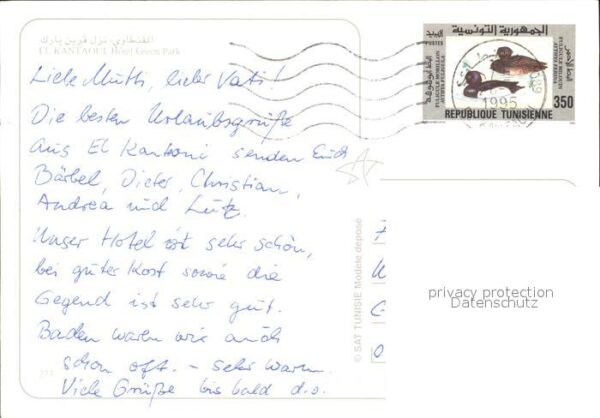 القنطاوي، نزل قرين بارك
EL KANTAOUI Hotel Green Park
Liebe Mutti, lieber Vati!
Die besten Urlaubsgrüße
aus El Kantoui senden Euch
Bärbel, Dieter, Christian,
Andrea und Lutz.
Unser Hotel ist sehr schön,
bei guter Kost sowie die
Gegend ist sehr gut.
Baden waren wir auch
schon oft. – sehr warm.
Viele Grüße bis bald d.o.
© SAT TUNISIE Modèle déposé
الجمهورية التونسية
POSTES
FULIGULE MORILLON
AYTHYA FULIGULA
FULIGULE MILOUIN
AYTHYA FERINA
1995
350
REPUBLIQUE TUNISIENNE
privacy protection
Datenschutz